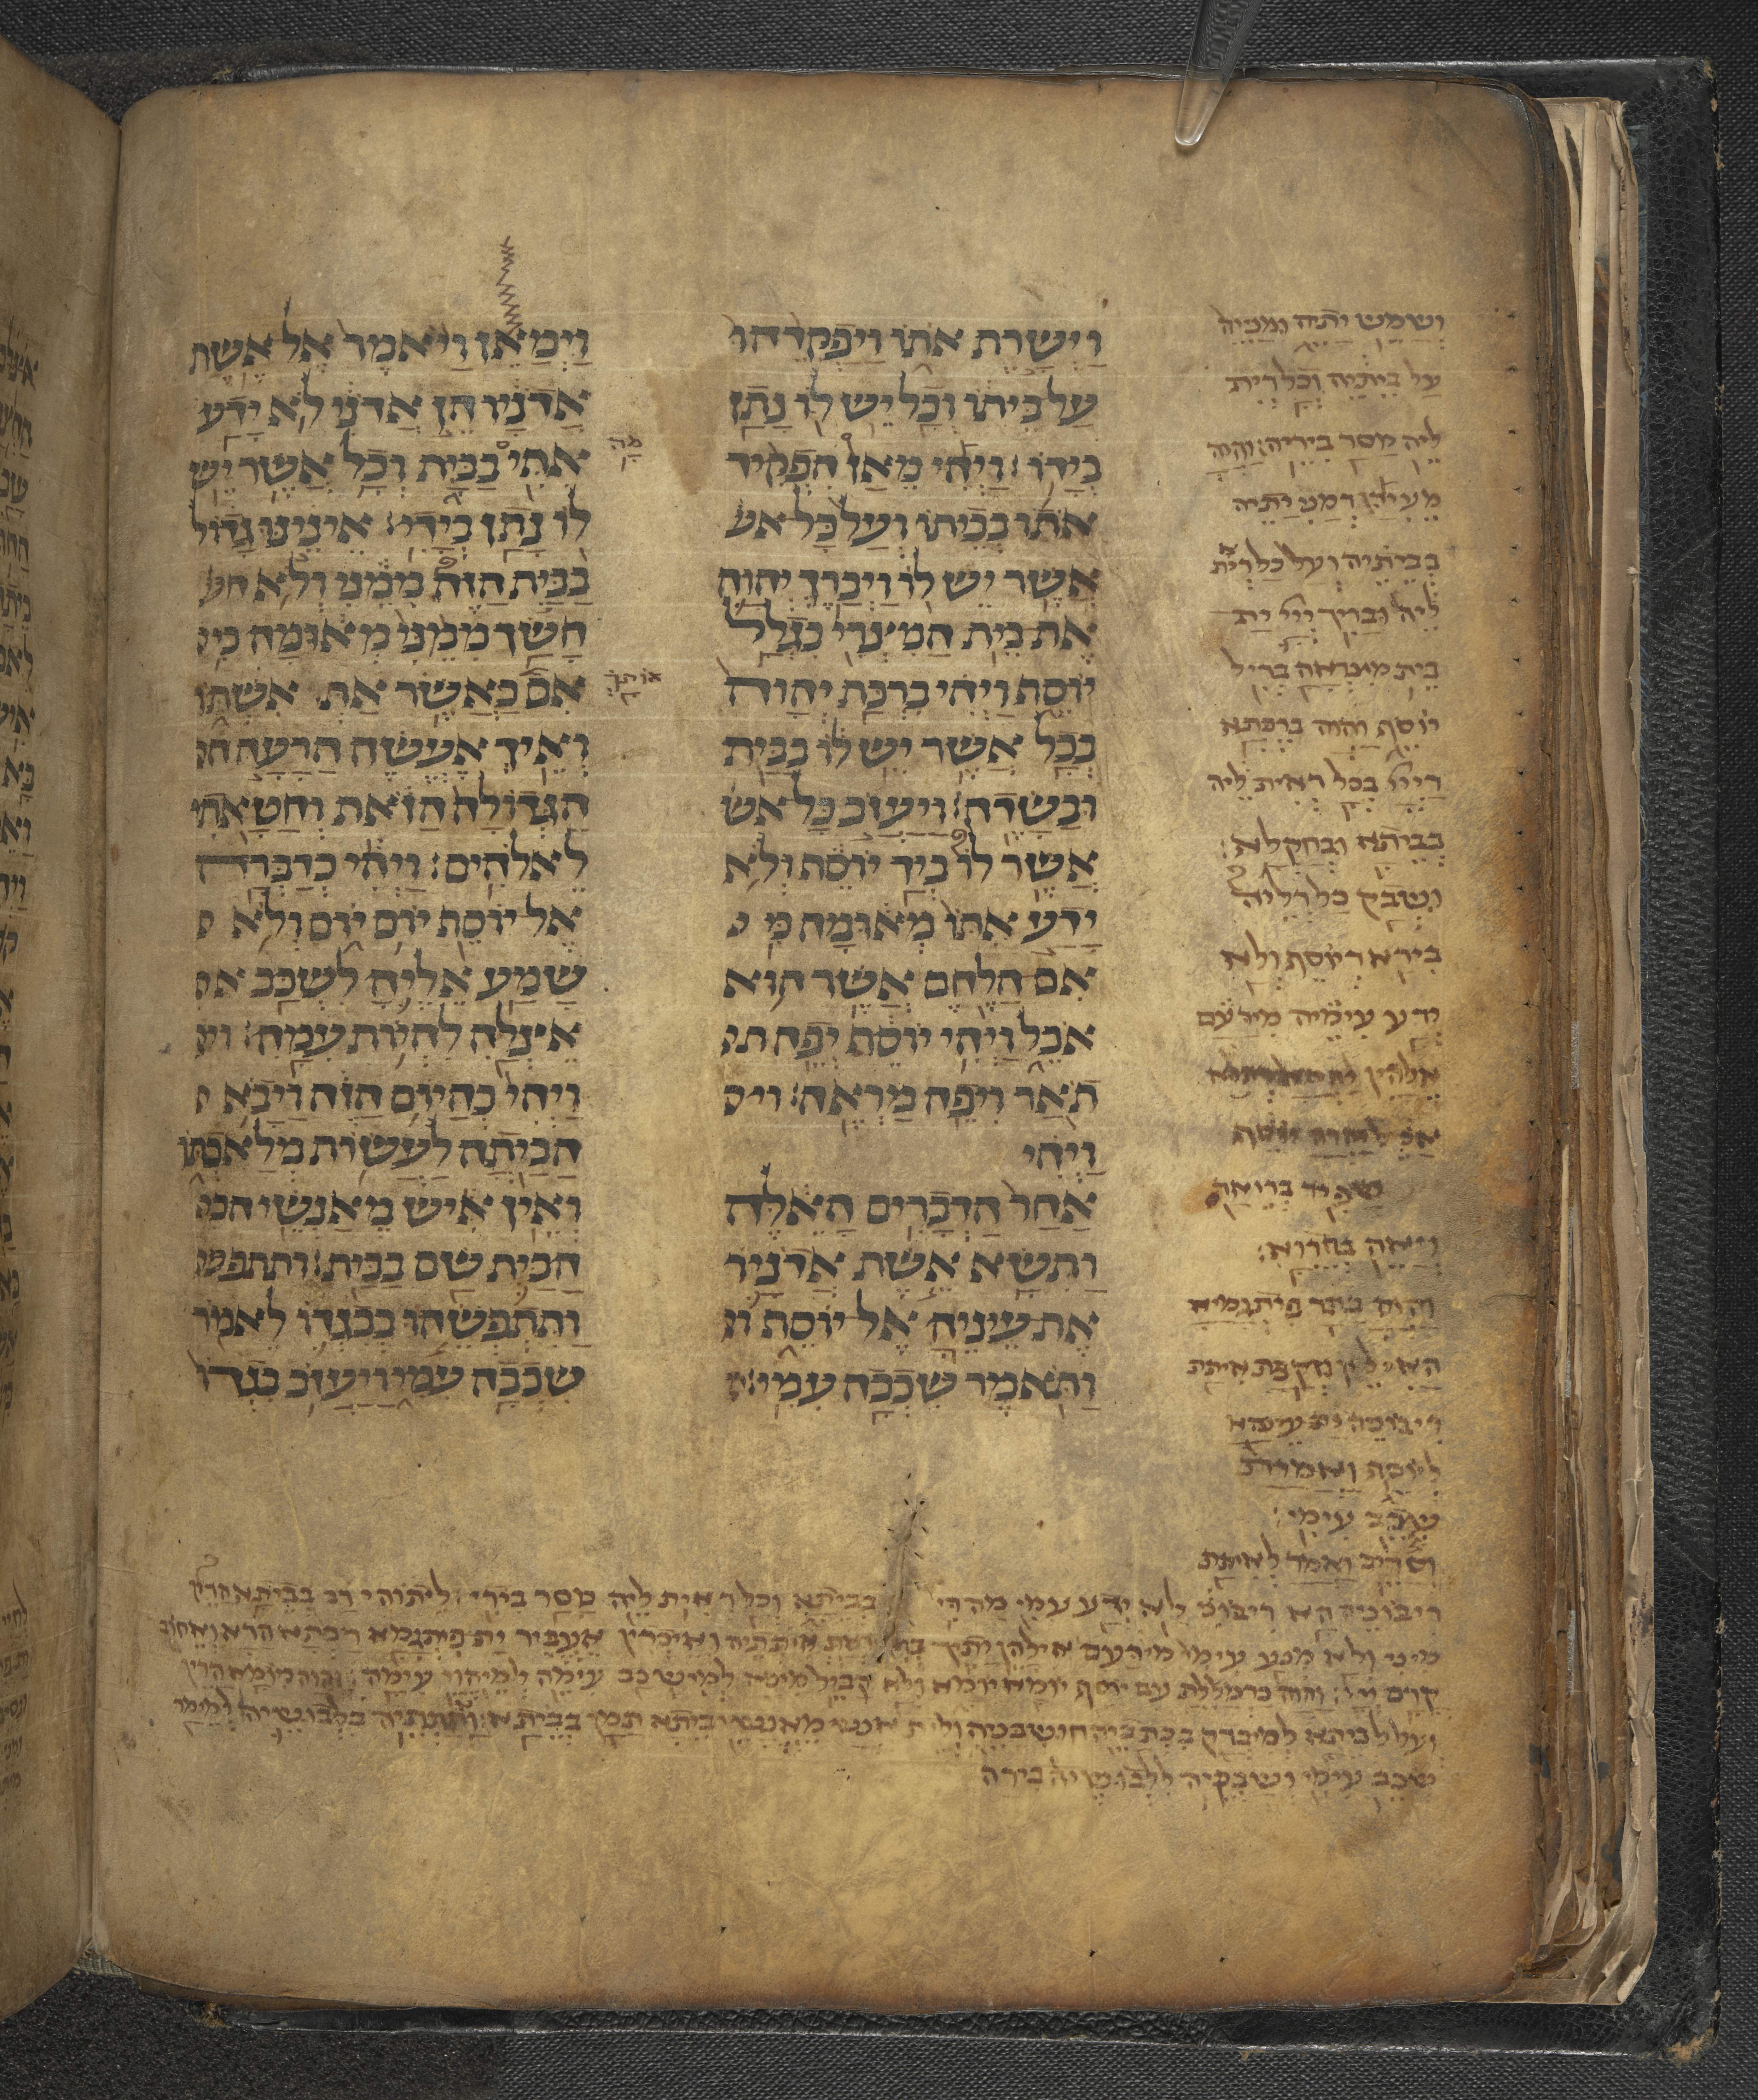 וישרת אתו ויפקדהו
על ביתו וכל יש לו נתן
בידו׃ ויהי מאז הפקיד
אתו בביתו ועל כל אש
אשר יש לו ויברך יהוה
את בית המצרי בגלל
יוסף ויהי ברכת יהוה
בכל אשר יש לו בבית
ובשדה׃ ויעזב כל אש
אשר לו ביד יוסף ולא
ידע אתו מאומה כי
אם הלחם אשר הוא
אכל ויהי יוסף יפה ת
תאר ויפה מראה׃
ויהי
אחר הדברים האלה
ותשא אשת אדניו
את עיניה אל יוסף ו
ותאמר שכבה עמי׃
וימאן ויאמר אל אשת
אדניו הן אדני לא ידע
אתי בבית וכל אשר יש
לו נתן בידי׃ איננו גדול
בבית הזה ממני ולא ח
חשך ממני מאומה כי
אם באשר את אשתו
ואיך אעשה הרעה ה
הגדולה הזאת וחטאתי
לאלהים׃ ויהי כדברה
אל יוסף יום יום ולא
שמע אליה לשכב א
אצלה להיות עמה׃
ויהי כהיום הזה ויבא
הביתה לעשות מלאכתו
ואין איש מאנשי הב
הבית שם בבית׃ ותתפש
ותתפשהו בבגדו לאמר
שכבה עמי ויעזב בגדו
מה
אותך
ושמש יתיה ומניה
על ביתיה וכל דאית
ליה מסר בידיה׃ והוה
מעידן דמני יתיה
בביתיה ועל כל דאית
ליה ובריך ייי ית
בית מצראה בדיל
יוסף והוה ברכתא
דייי בכל דאית ליה
בביתא ובחקלא׃
ושבק כל דליה
בידא דיוסף ולא
ידע עימיה מידעם
אלהין
יוסף
שפיר בריוא
ויאה בחזוא׃
והוה בתר פיתגמיא
האילין וזקפת איתת
ריבוניה ית עינהא
ליוסף ואמרת
שכב עימי׃
וסריב ואמר לאיתת
ריבוניה הא ריבוני לא ידע עמי מה די בביתא וכל דאית ליה מסר בידי׃ ליתוהי רב בביתא הדין
מיני ולא מנע עימי מידעם אילהין יתיך איתתיה ואיכדין אעביד ית פיתגמא רבתא הדא ואחוב
קדם ייי׃ והוה כד מללת עם יוסף יומא יומא ולא קביל מינה למישכב עימה למיהוי עימה׃ והוה כיומא הדין
ועל לביתא למיבדק בכתבי חושבניה ולית אנש מאנשי ביתא תמן בביתא׃ ואחדתיה בלבושיה למימר
שכב עימי ושבקיה ללבושיה בידה